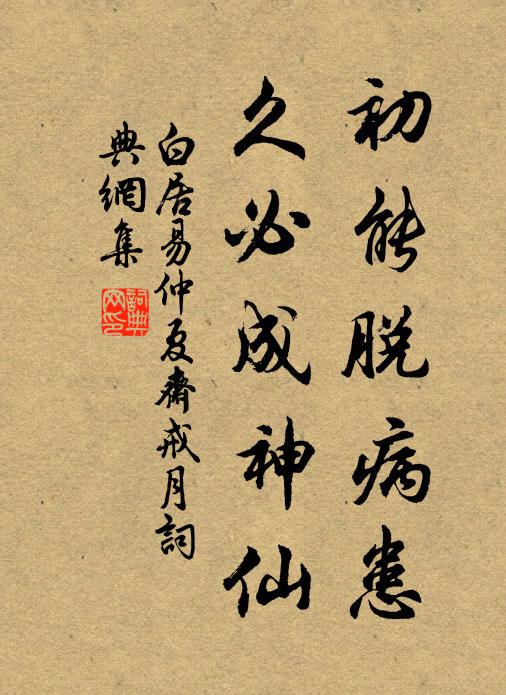 初能脱病患
久必成神仙
白居易仲夏齋戒月詞
典網集
詞典網印